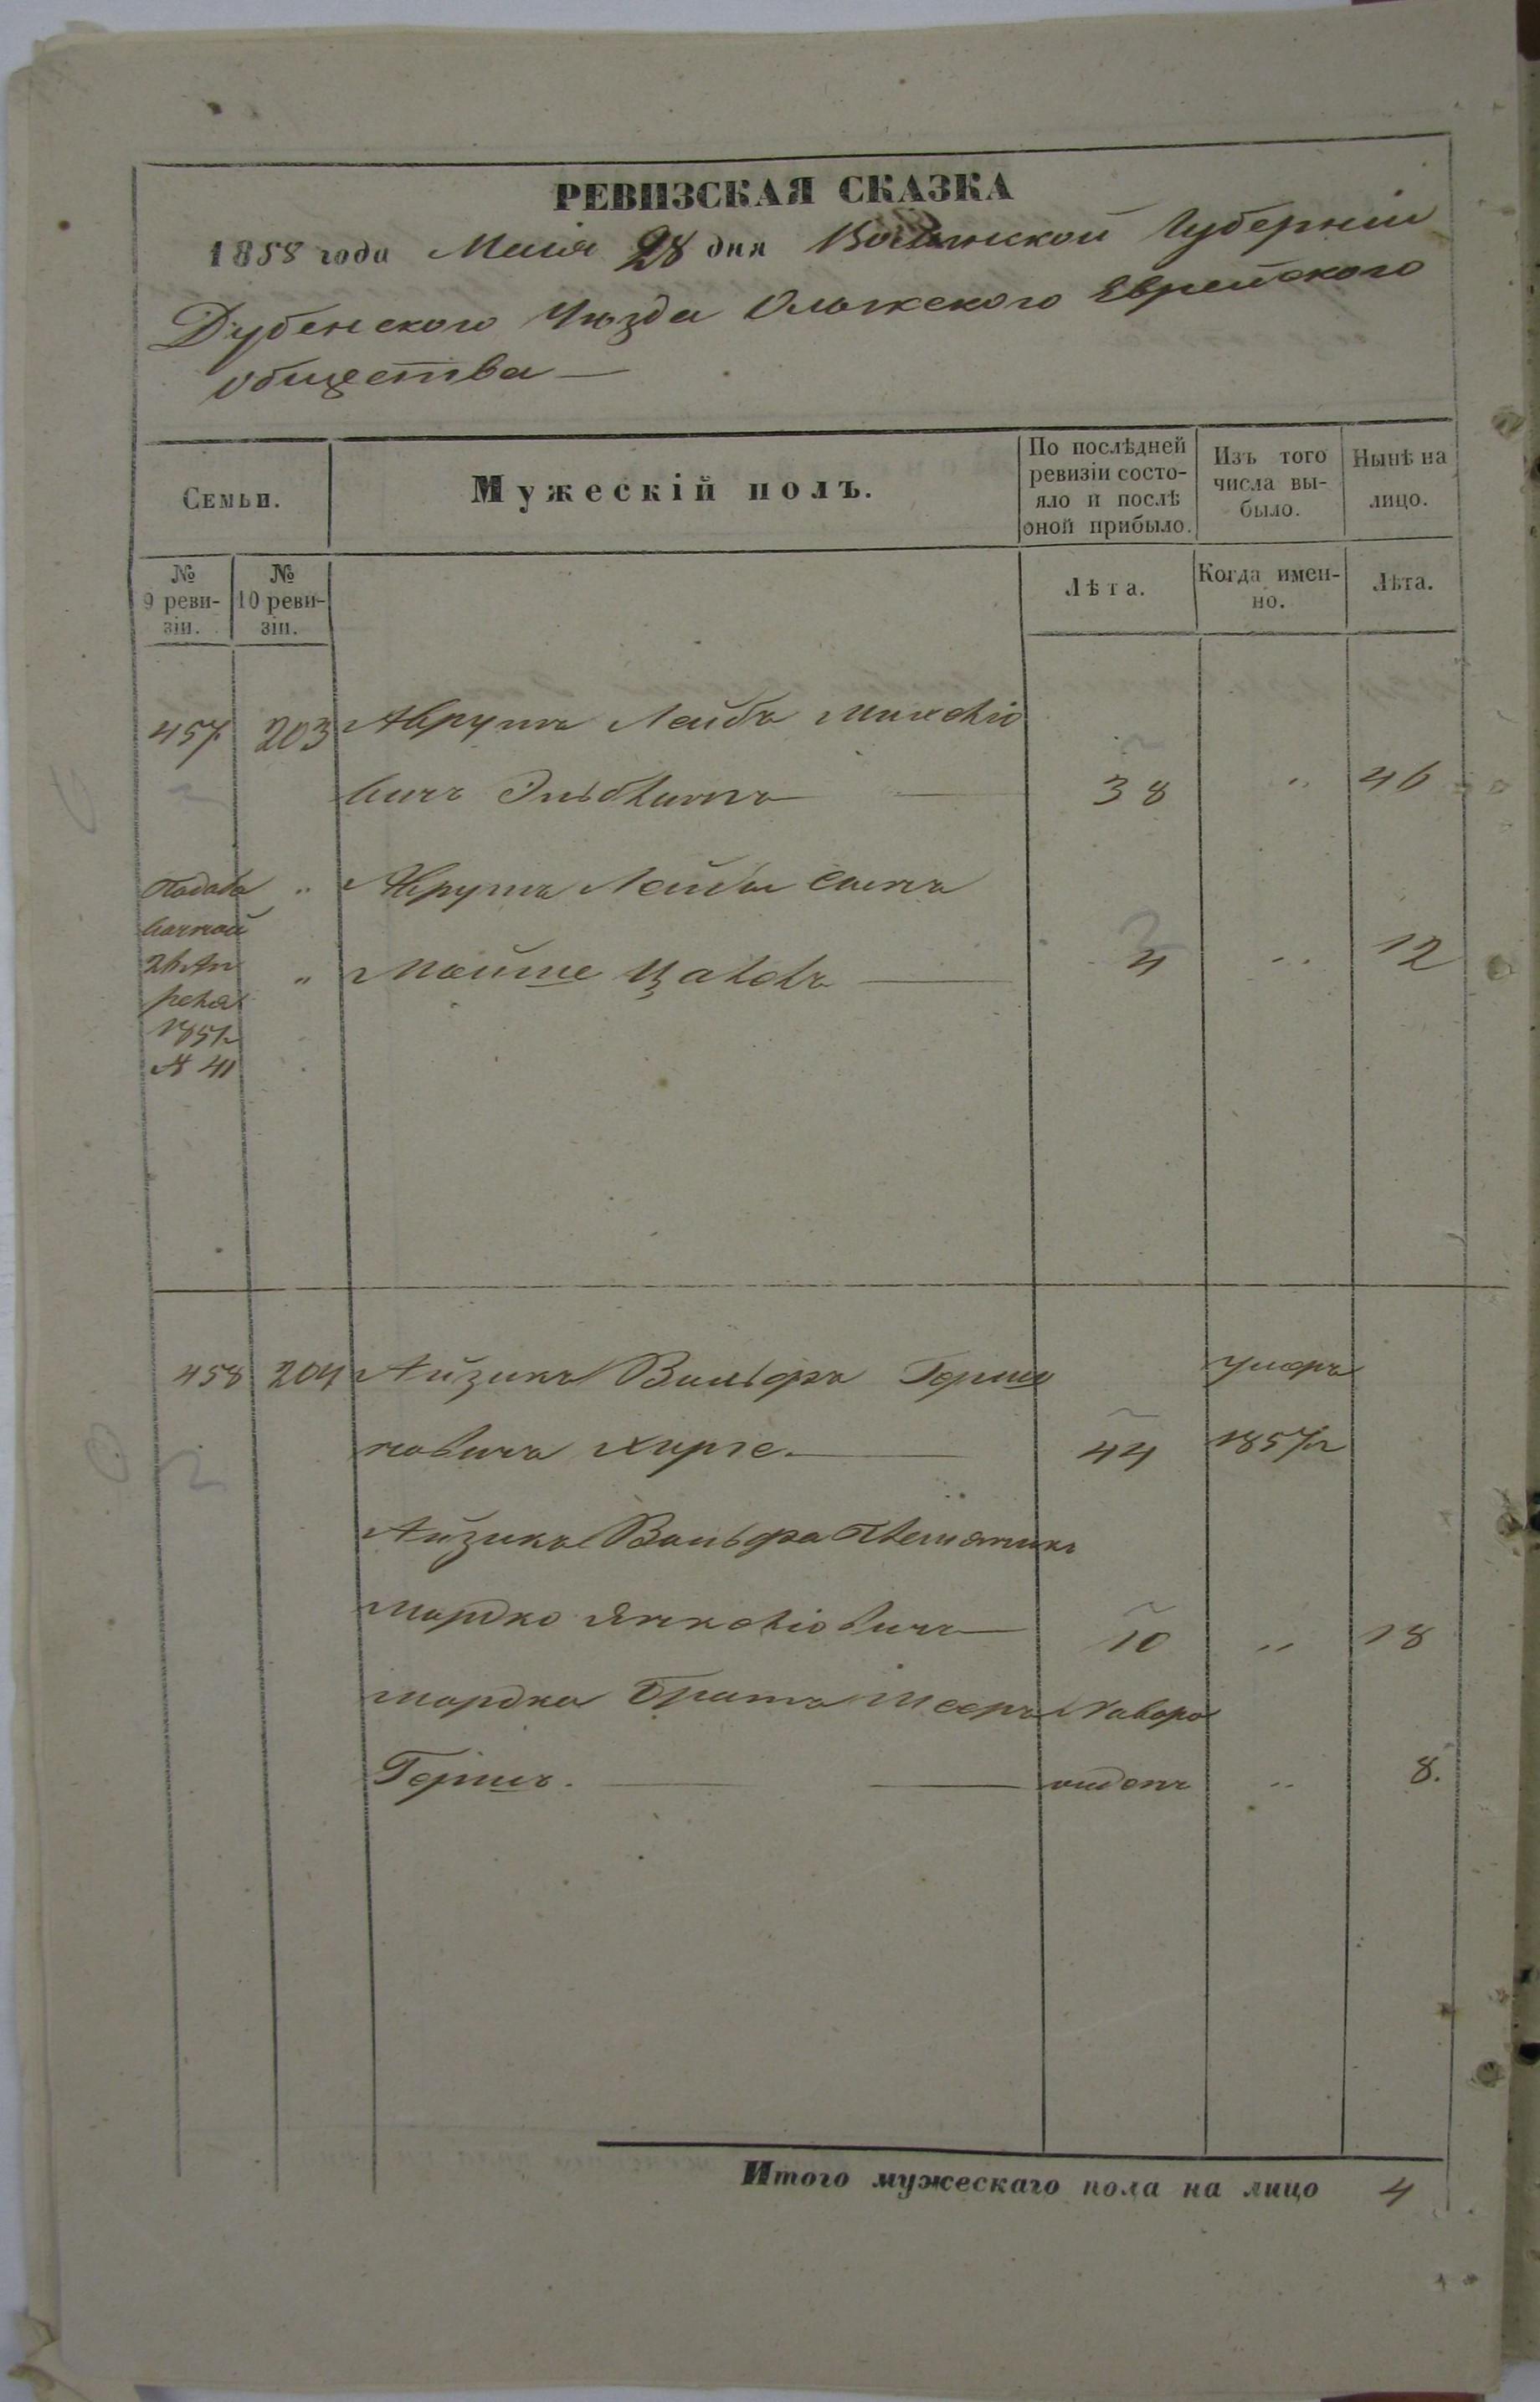 РЕВИЗСКАЯ СКАЗКА
1858 года Маія 28 дня Волынской Губерніи
Дубенского Уѣзда Олыкского Еврейского
общества —
Семьи.
Мужескій полъ.
По послѣдней ревизіи состо-
яло и послѣ
оной прибыло.
Изъ того
числа вы-
было.
Нынѣ на
лицо.
№
9 реви-
зіи.
№
10 реви-
зіи.
Лѣта.
Когда имен-
но.
Лѣта.
457 203 Аврумъ Лейбъ
вичъ 38 „ 46
„ Аврумъ Лейбы сынъ
„ Мойше 4 „ 12
1851
№ 41
458 204 Айзикъ Вольфъ Герш умеръ
ковичъ 44 1857г
Айзика Вольфа Племянникъ
Мордко Янкелiовичъ — 10 „ 18
Мордка Братъ Мееръ
Гершъ. — „ 8.
Итого мужескаго пола на лицо 4